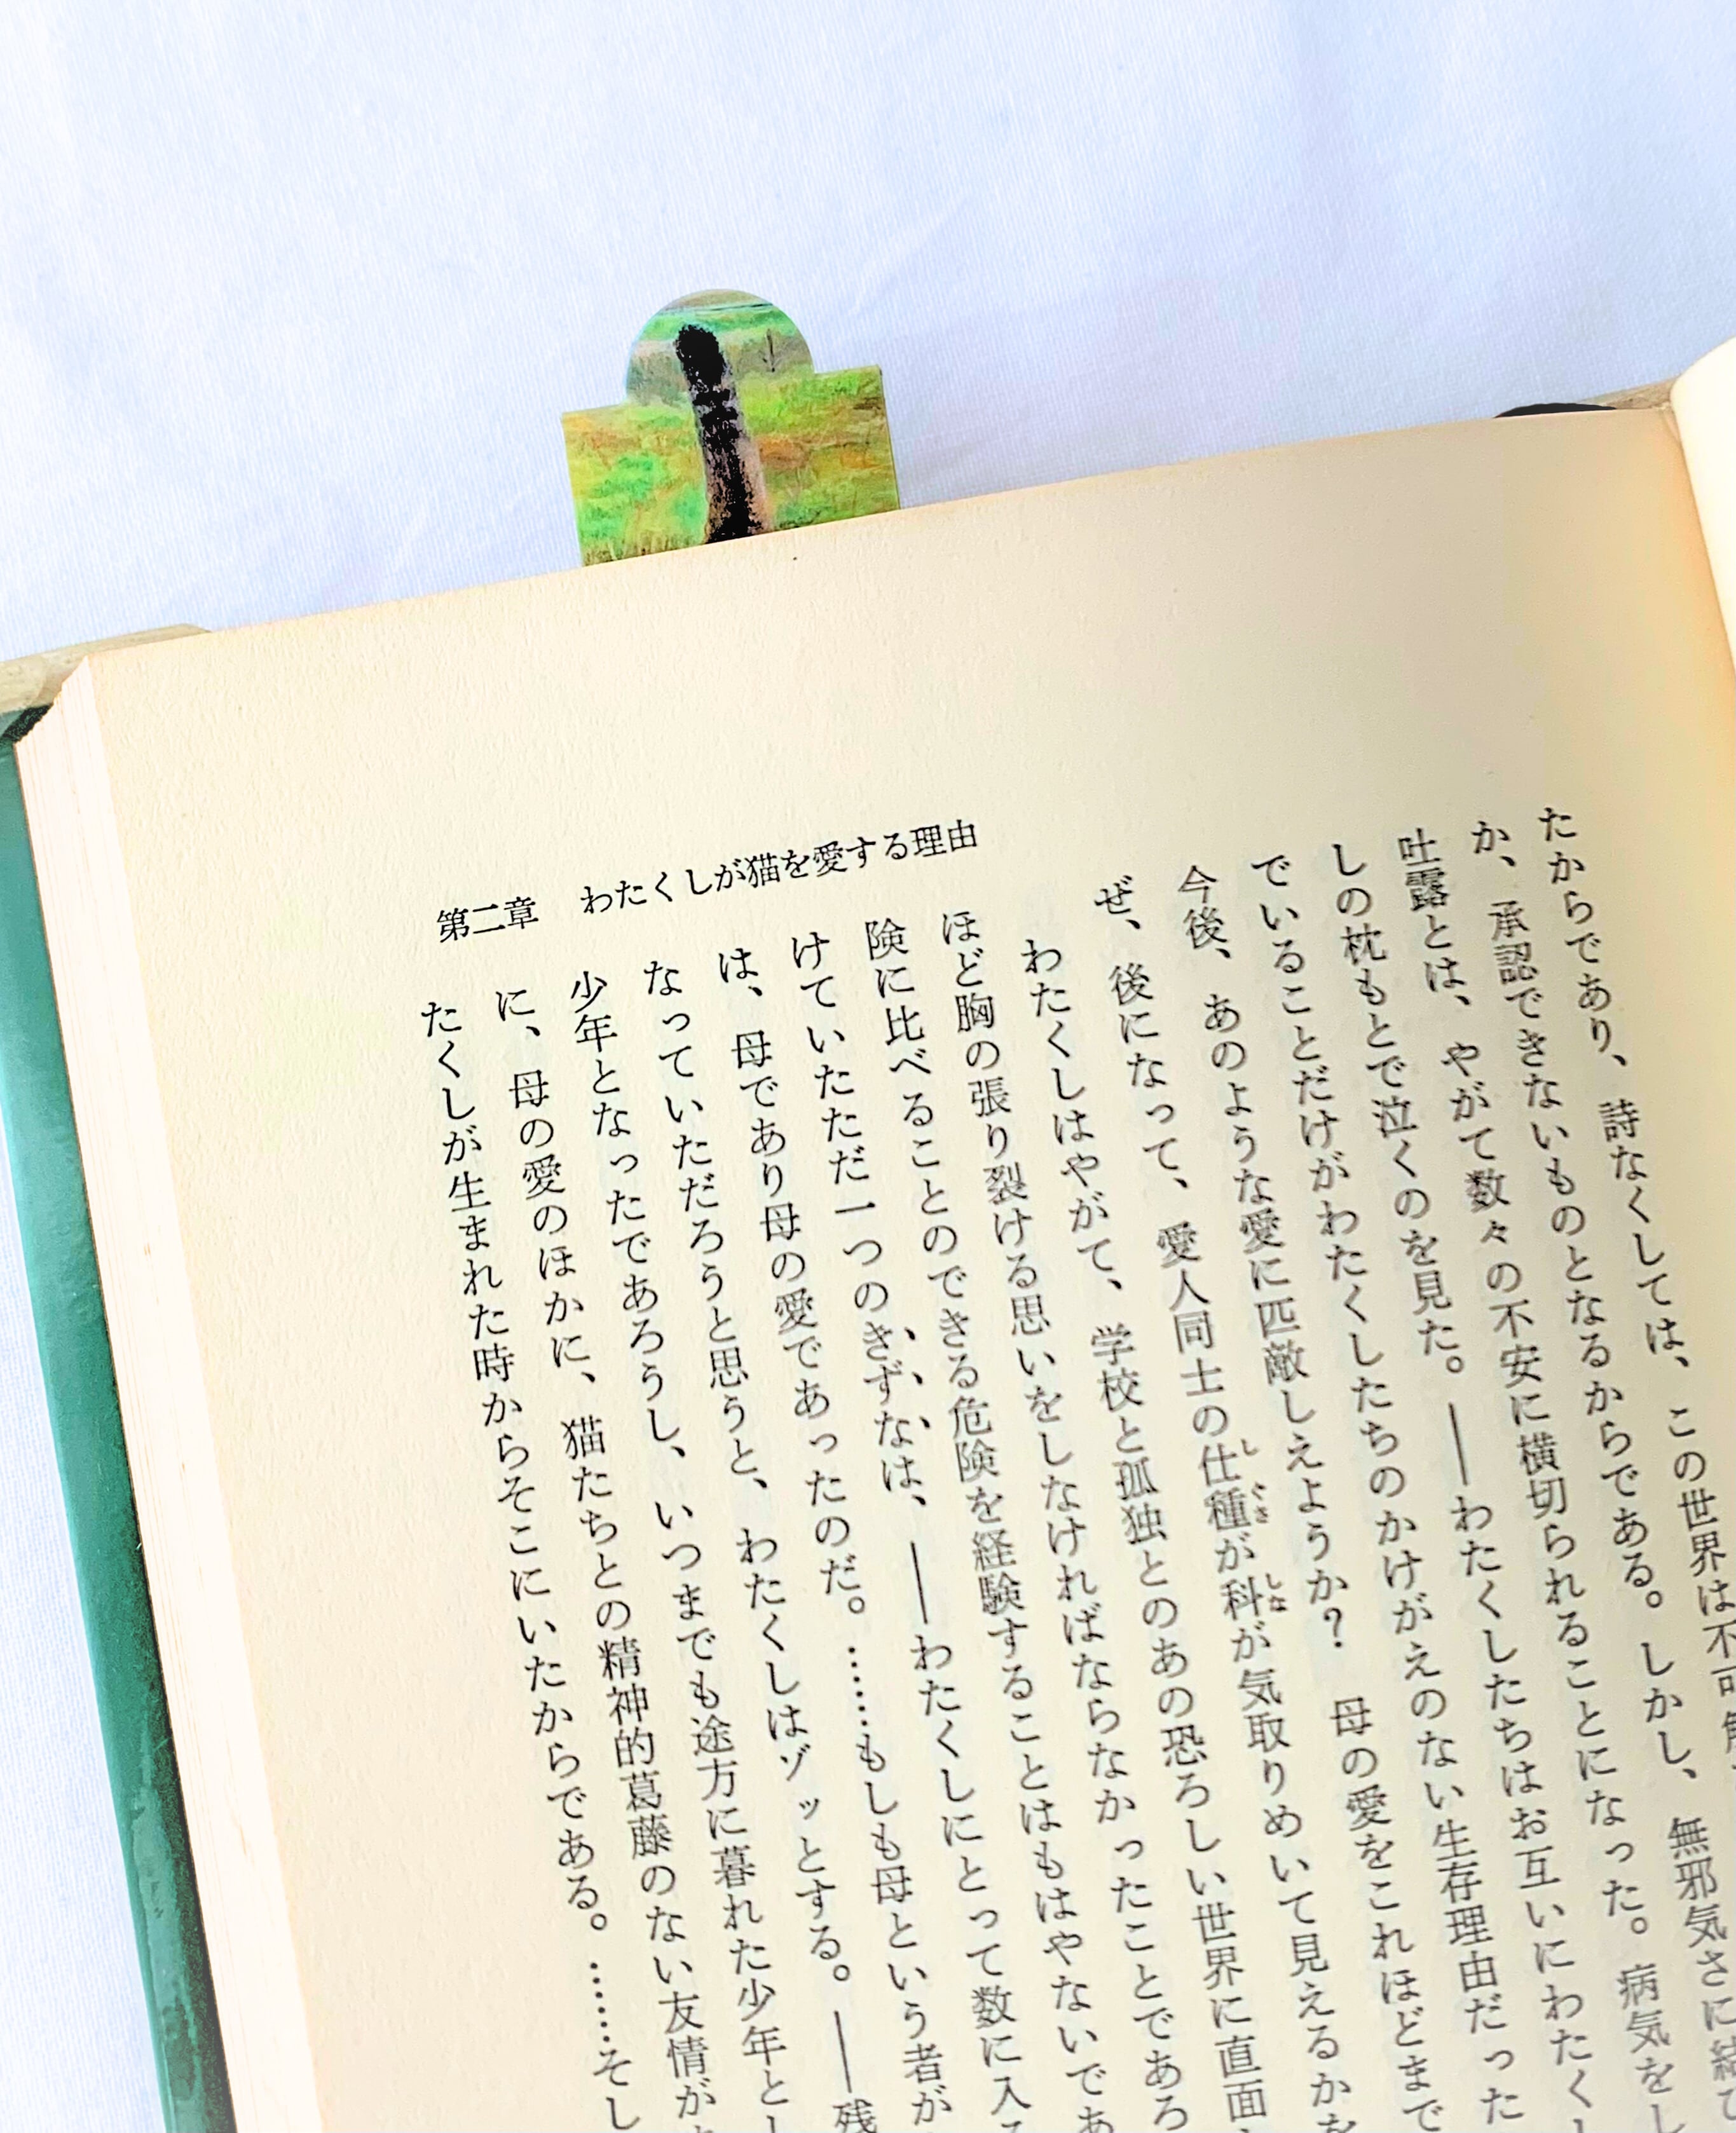 第二章　わたくしが猫を愛する理由
この世界は不可
たからであり、詩なくしては、
か、承認できないものとなるからである。しかし、無邪気さに結び
吐露とは、やがて数々の不安に横切られることになった。病気をし
しの枕もとで泣くのを見た。――わたくしたちはお互いにわたく
でいることだけがわたくしたちのかけがえのない生存理由だった
今後、あのような愛に匹敵しえようか？　母の愛をこれほどまで
ぜ、後になって、愛人同士の仕種が科が気取りめいて見えるかを
わたくしはやがて、学校と孤独とのあの恐ろしい世界に直面
ほど胸の張り裂ける思いをしなければならなかったことであろ
険に比べることのできる危険を経験することはもはやないであ
けていただだ一つのきずなは、――わたくしにとって数に入る
は、母であり母の愛であったのだ。……もしも母という者が
なっていただろうと思うと、わたくしはゾッとする。――残
少年となったであろうし、いつまでも途方に暮れた少年とし
に、母の愛のほかに、猫たちとの精神的葛藤のない友情が
たくしが生まれた時からそこにいたからである。……そし